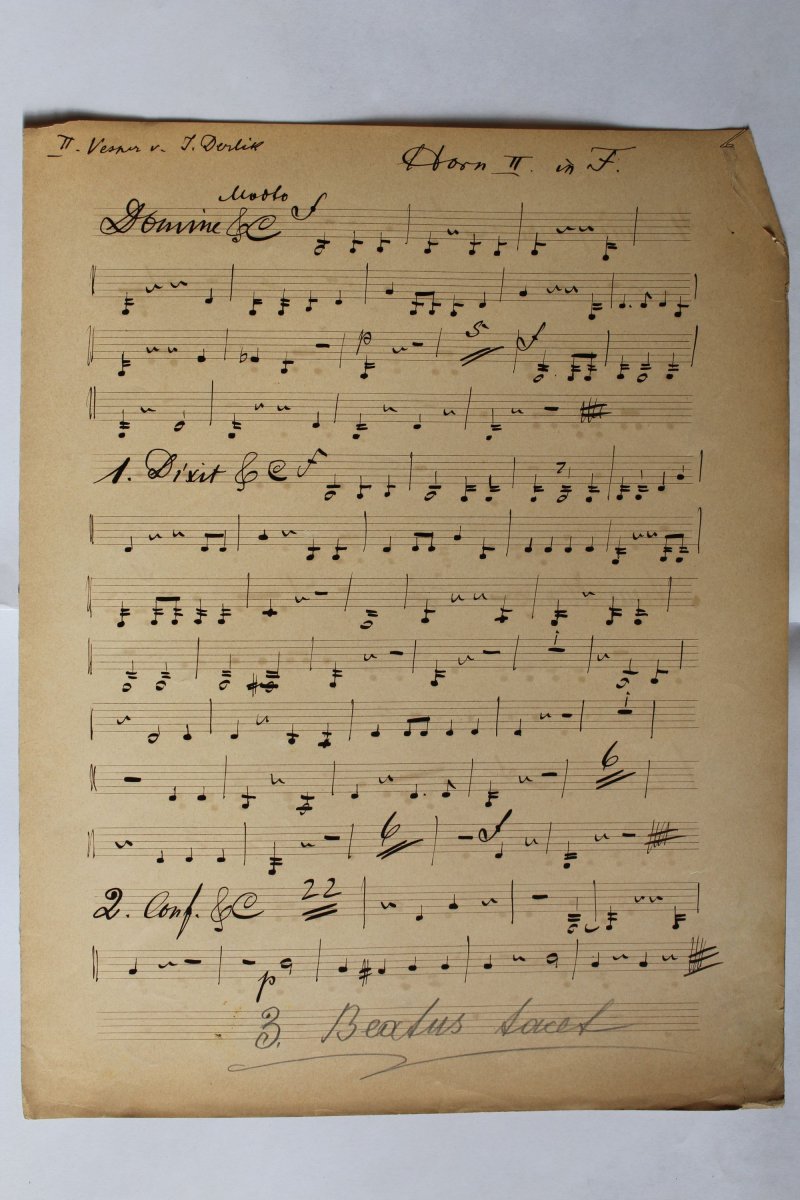 II. Vesper v. J. Derlik
Horn II. in F.
Modto
Domine C f
p 5 f
1. Dixit C f
7
1
1
6
6 f
2. Conf. C 22
p
3. Beatus tacet